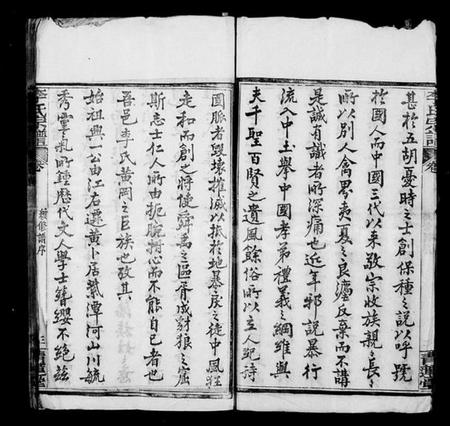 甚於五胡憂時之士創保種之說以呼號
於國人而中國三代以來敬宗收族親親長長
所以別人禽界夷夏之良灋反棄而不講
是誠有識者所深痛也近年邪說暴行
流入中土舉中國孝弟禮義之綱維與
夫千聖百賢之遺風餘俗所以立人紀持
國脈者毀壞摧滅以抵於地暴戾之徒中風狂
走和而創之將使舜禹之區胥成豺狼之窟
斯志士仁人所由扼腕拊心而不能自已者也
吾邑李氏黃岡之巨族也攷其
始祖興一公由江右遷黃卜居縈潭河山川毓
秀靈氣所鍾歷代文人學士簪纓不絕茲
李氏宗譜
卷
續修譜序
三